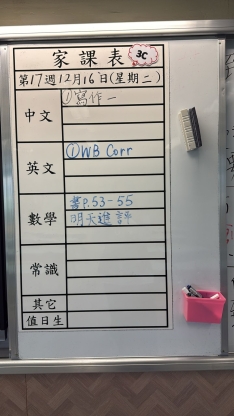 家課表 3C
第17週12月16日(星期二)
中文 ①寫作一
英文 ①WB Corr
數學 書P.53-55
明天進評
常識
其它
值日生